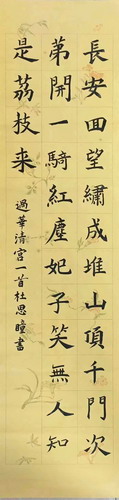 長安回望繡成堆山頂千門次
第開一騎紅塵妃子笑無人知
是荔枝来
過華清宮一首杜思瞳書